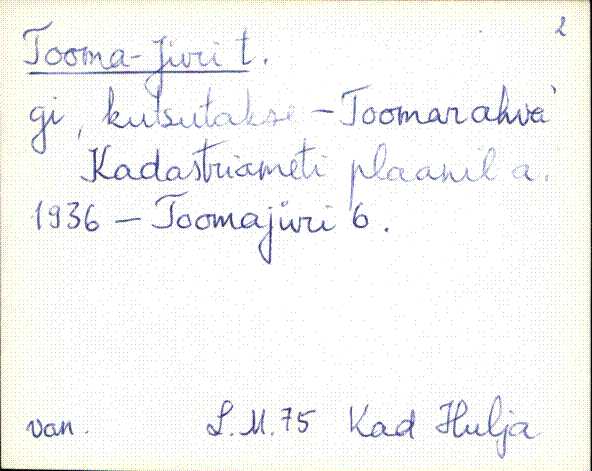 2
Tooma-Jüri t.
gi, kutsutakse - Toomarahva`
Kadastriameti plaanil a.
1936 - Toomajüri 6.
van. L.M.75 Kad Hulja